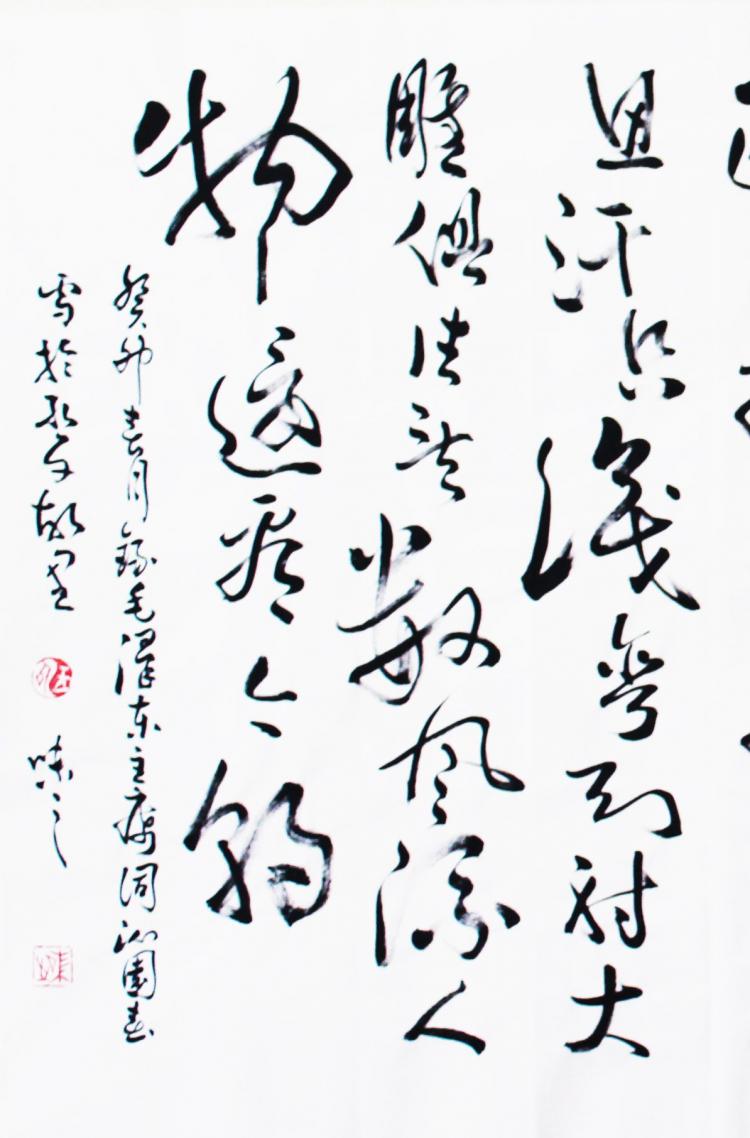 思汗只识弯弓射大
雕俱往矣数风流人
物还看今朝
癸卯春月录毛泽东主席词沁园春
雪於孔子故里
味之